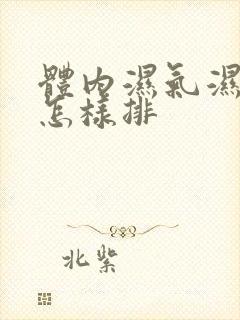 體內濕氣濕
怎樣排
北紫